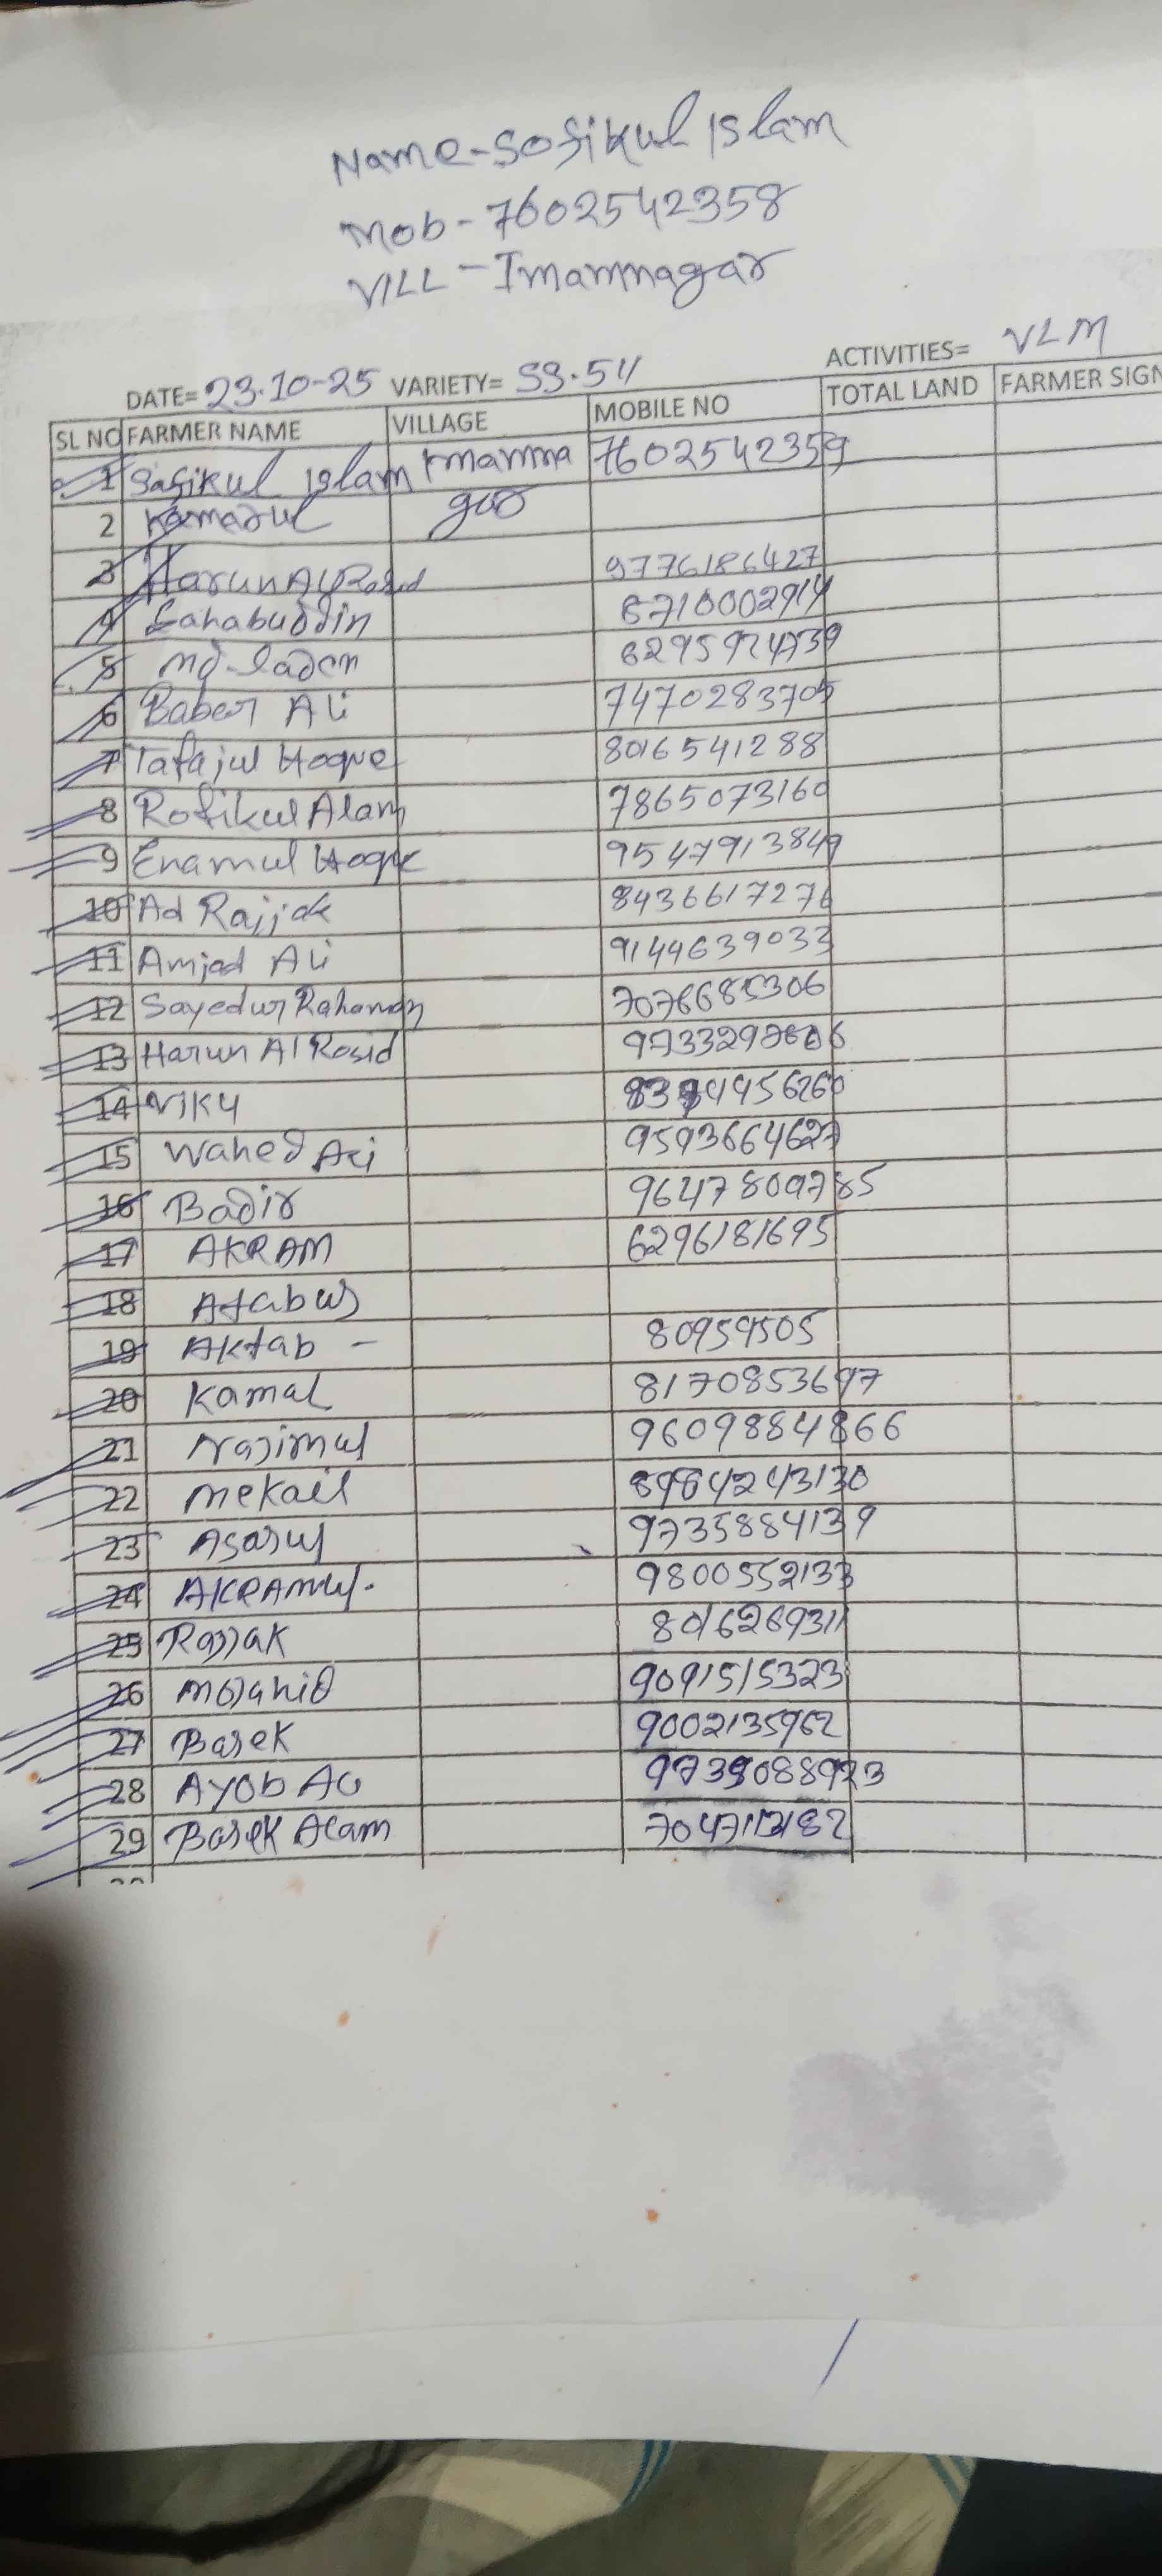 Name-Sofikul Islam
Mob-7602542358
VILL-Imamnagar
ACTIVITIES= VLM
DATE=23.10-25 VARIETY= SS.511
SL NO FARMER NAME VILLAGE MOBILE NO TOTAL LAND FARMER SIGN
1 Safikul Islam Imamna 7602542359
2 Kamarul gar
3 Harun Al Rosid 9776186427
4 Sahabuddin 6710002914
5 Md-Laden 6295924739
6 Baber Ali 7470283705
7 Tafajul Hoque 8016541288
8 Rofikul Alam 7865073160
9 Enamul Hoque 9547913849
10 Ad Rajjak 8436617276
11 Amjad Ali 9144639033
12 Sayedur Rahaman 7076685306
13 Harun Al Rosid
14 VIKY
15 Wahed Ali 9593664627
16 Badir 9647809785
17 AKRAM 6296181695
18
19 Aktab - 80959505
20 Kamal 8170853697
21 Najimul 9609884866
22 Mekail 8984243130
23 Asarul 9735884139
24 AKRAMul. 9800552133
25 Rajjak 8016269311
26 Mojahid 9091515323
27 Barek 9002135962
28 Ayob Ali
29 Barek Alam